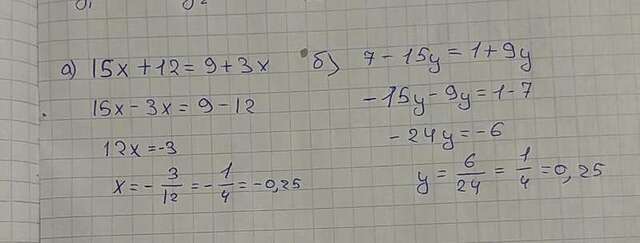 а) 15x + 12 = 9 + 3x
15x - 3x = 9 - 12
12x = -3
x = - 3/12 = - 1/4 = -0,25
б) 7 - 15y = 1 + 9y
-15y - 9y = 1 - 7
-24y = -6
y = 6/24 = 1/4 = 0,25